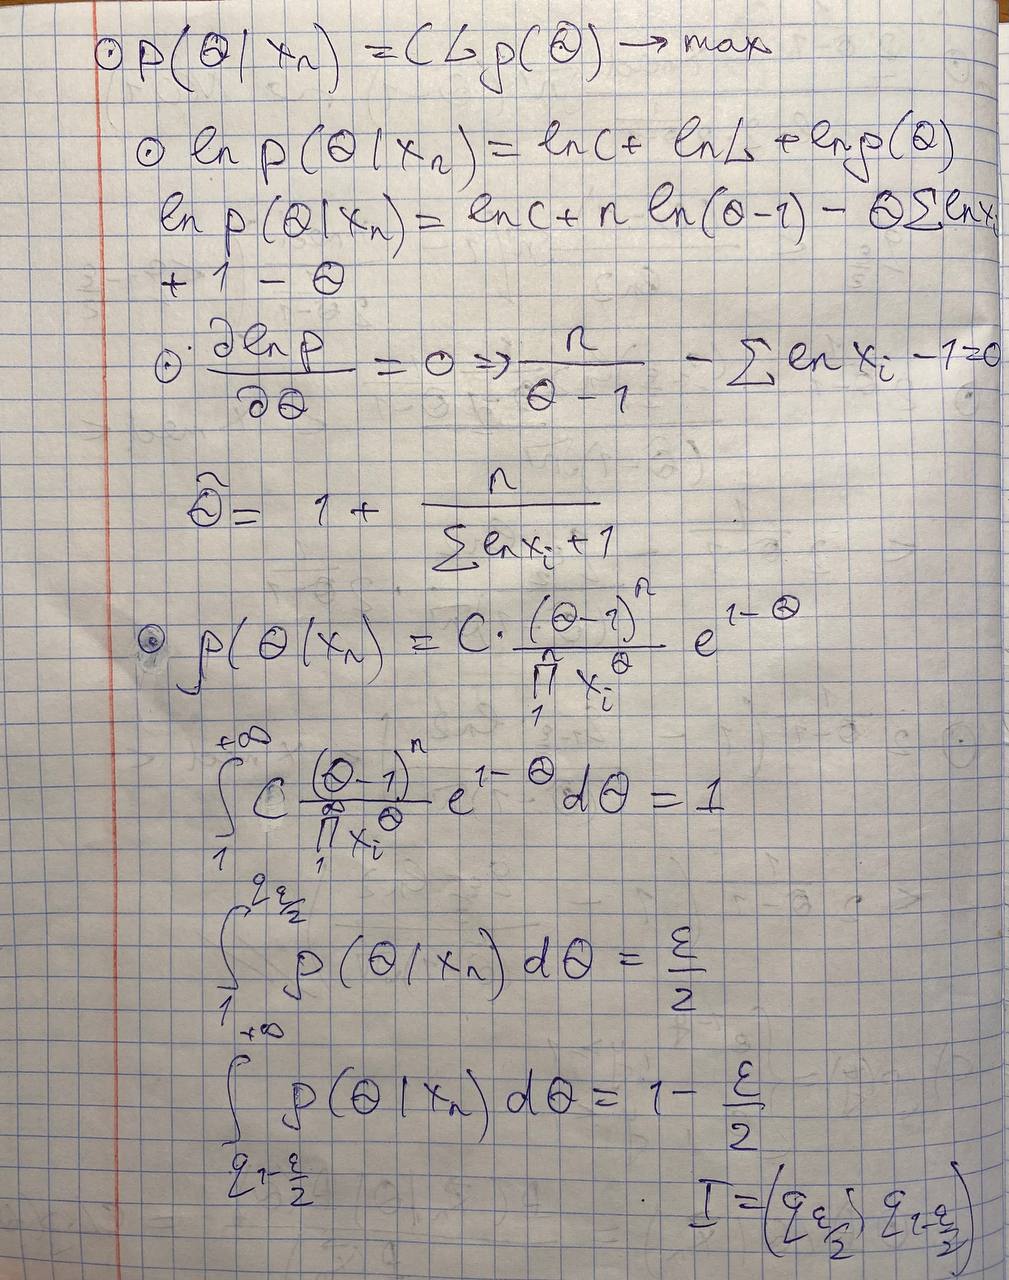 ⊙ p(Θ|xₙ) = C L p(Θ) → max
⊙ ln p(Θ|xₙ) = ln C + ln L + ln p(Θ)
ln p(Θ|xₙ) = ln C + n ln(Θ-1) - Θ Σ ln xᵢ
+ 1 - Θ
⊙ ∂ ln p / ∂Θ = 0 => n / (Θ - 1) - Σ ln xᵢ - 1 = 0
Θ̃ = 1 + n / (Σ ln xᵢ + 1)
⊙ p(Θ|xₙ) = C · (Θ-1)ⁿ / ∏₁ⁿ xᵢ^Θ e^(1-Θ)
∫₁^(+∞) C (Θ-1)ⁿ / ∏₁ⁿ xᵢ^Θ e^(1-Θ) dΘ = 1
∫₁^(q_(ε/2)) p(Θ|xₙ) dΘ = ε/2
∫_(q_(1-ε/2))^(+∞) p(Θ|xₙ) dΘ = 1 - ε/2
I = (q_(ε/2); q_(1-ε/2))